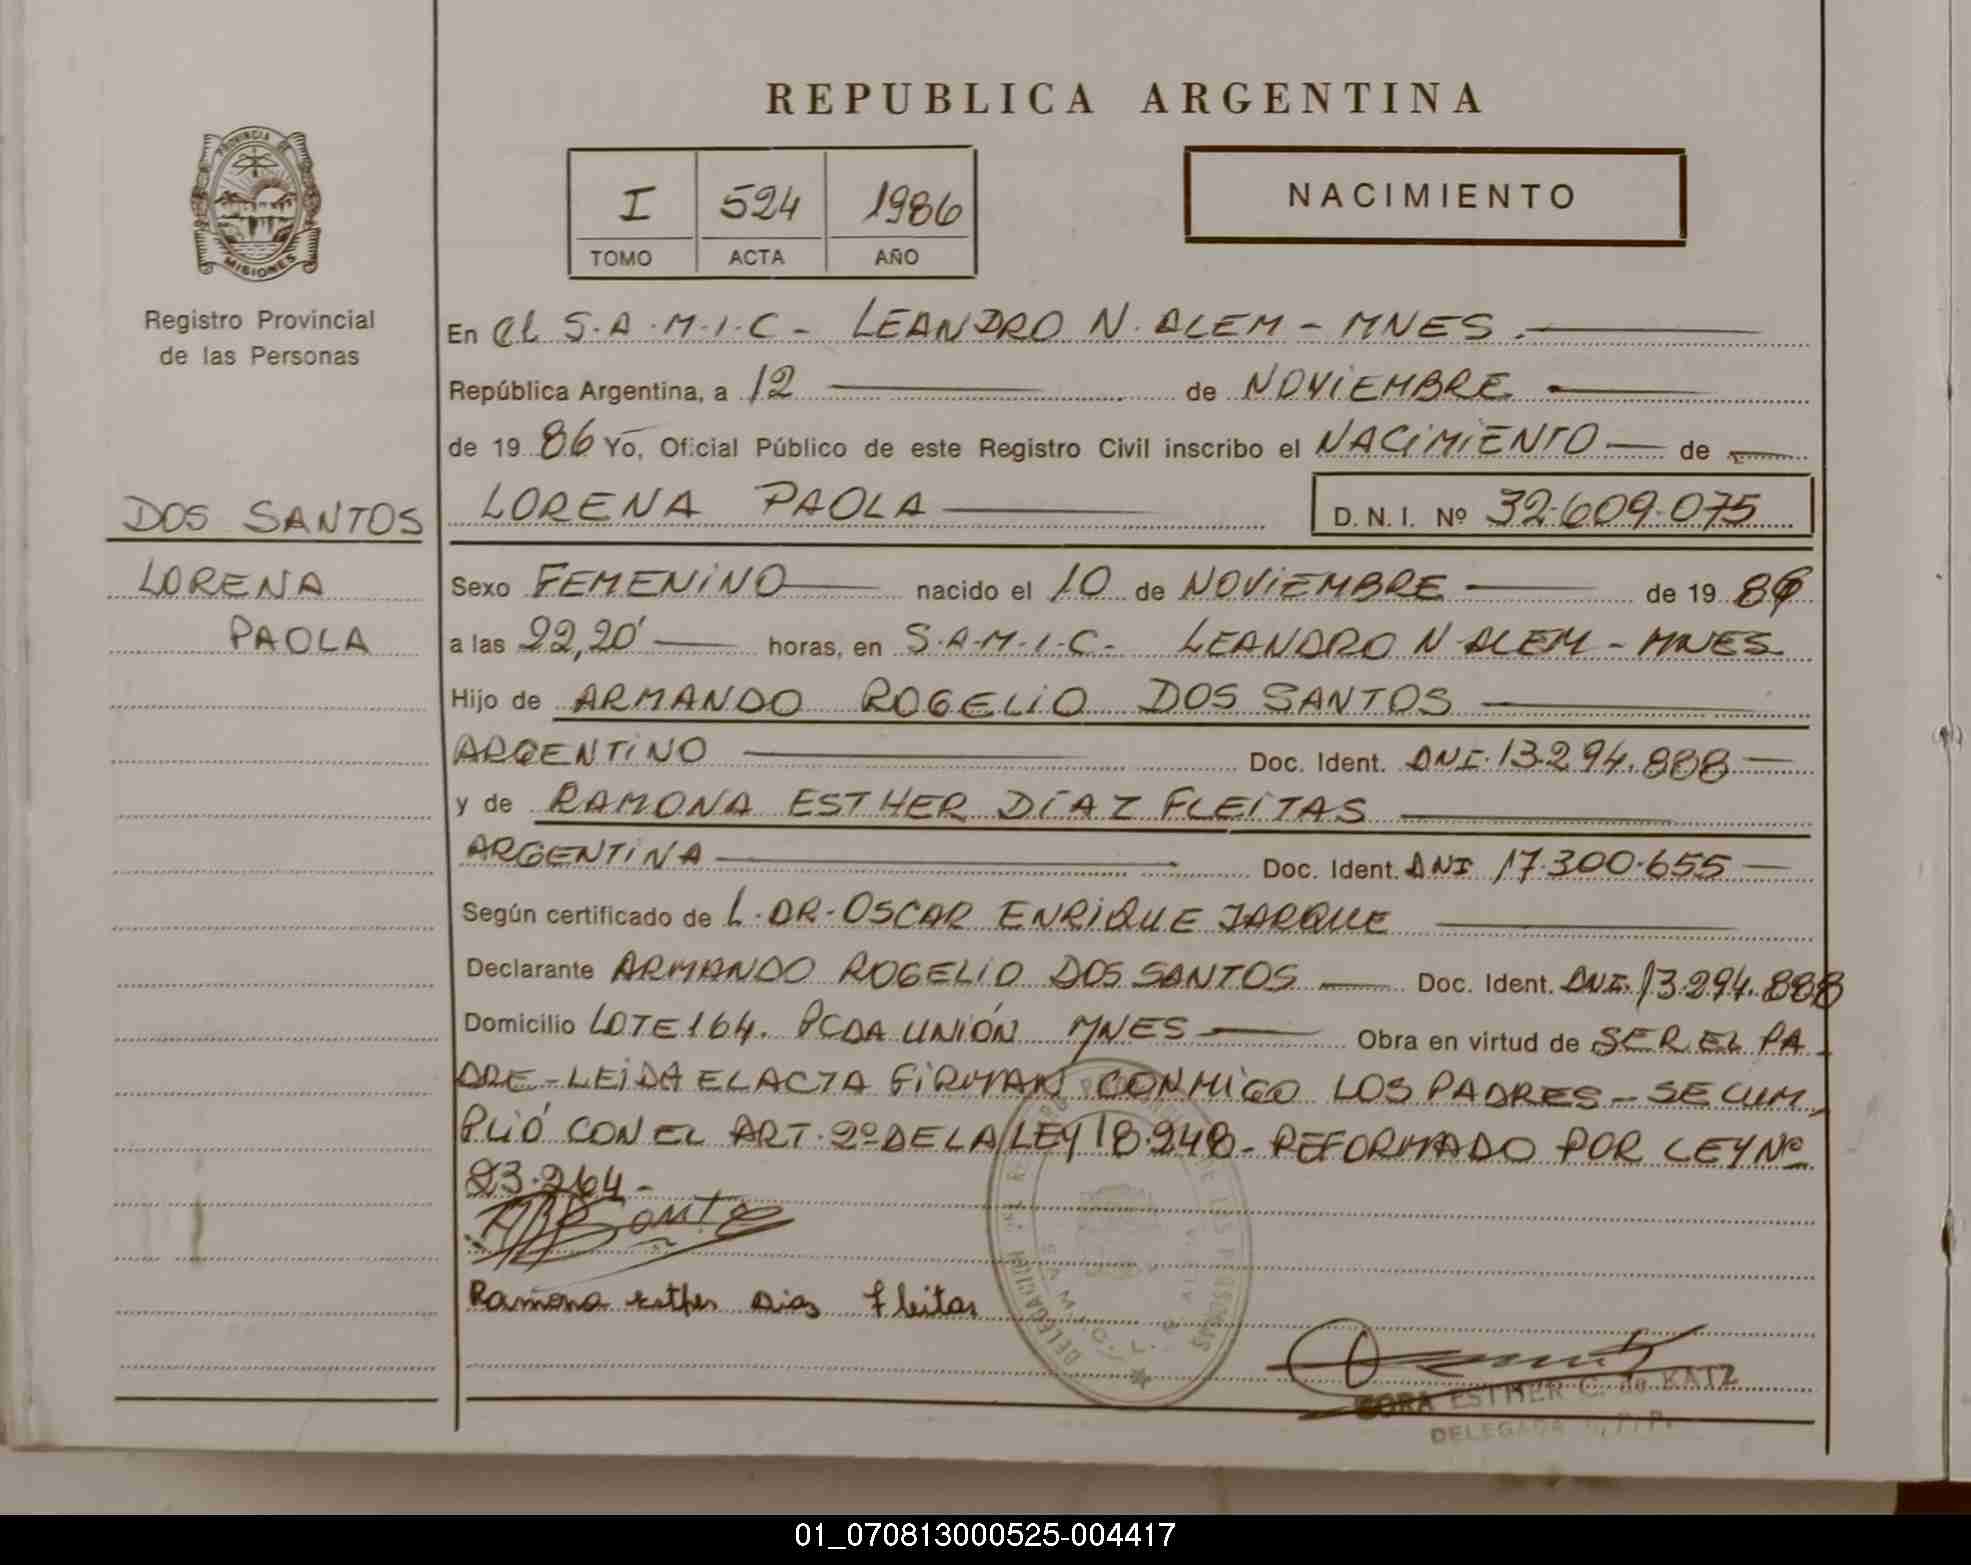 REPUBLICA ARGENTINA
PROVINCIA DE
MISIONES
Registro Provincial
de las Personas
I 524 1986
TOMO ACTA AÑO
NACIMIENTO
DOS SANTOS
LORENA
PAOLA
En el S.A.M.I.C- LEANDRO N. ALEM - MNES.
República Argentina, a 12 de NOVIEMBRE
de 1986 Yo, Oficial Público de este Registro Civil inscribo el NACIMIENTO de
LORENA PAOLA D. N. I. Nº 32.609.075
Sexo FEMENINO nacido el 10 de NOVIEMBRE de 1986
a las 22,20' horas, en S.A.M.I.C- LEANDRO N ALEM - MNES
Hijo de ARMANDO ROGELIO DOS SANTOS
ARGENTINO Doc. Ident. DNI. 13.294.888
y de RAMONA ESTHER DÍAZ FLEITAS
ARGENTINA Doc. Ident. DNI 17.300.655
Según certificado de L. DR. OSCAR ENRIQUE JARQUE
Declarante ARMANDO ROGELIO DOS SANTOS Doc. Ident. DNI. 13.294.888
Domicilio LOTE 164. PCDA UNIÓN MNES Obra en virtud de SER EL PA-
DRE - LEIDA EL ACTA FIRMAN CONMIGO LOS PADRES - SE CUM-
PLIÓ CON EL ART. 2º DE LA LEY 18.248 - REFORMADO POR LEY Nº
23.264 -
Ramona esther Dias fleitas
DELEGACION S.A.M.I.C. L.
ESTHER C. de KATZ
DELEGADA R. P. P.
01_070813000525-004417